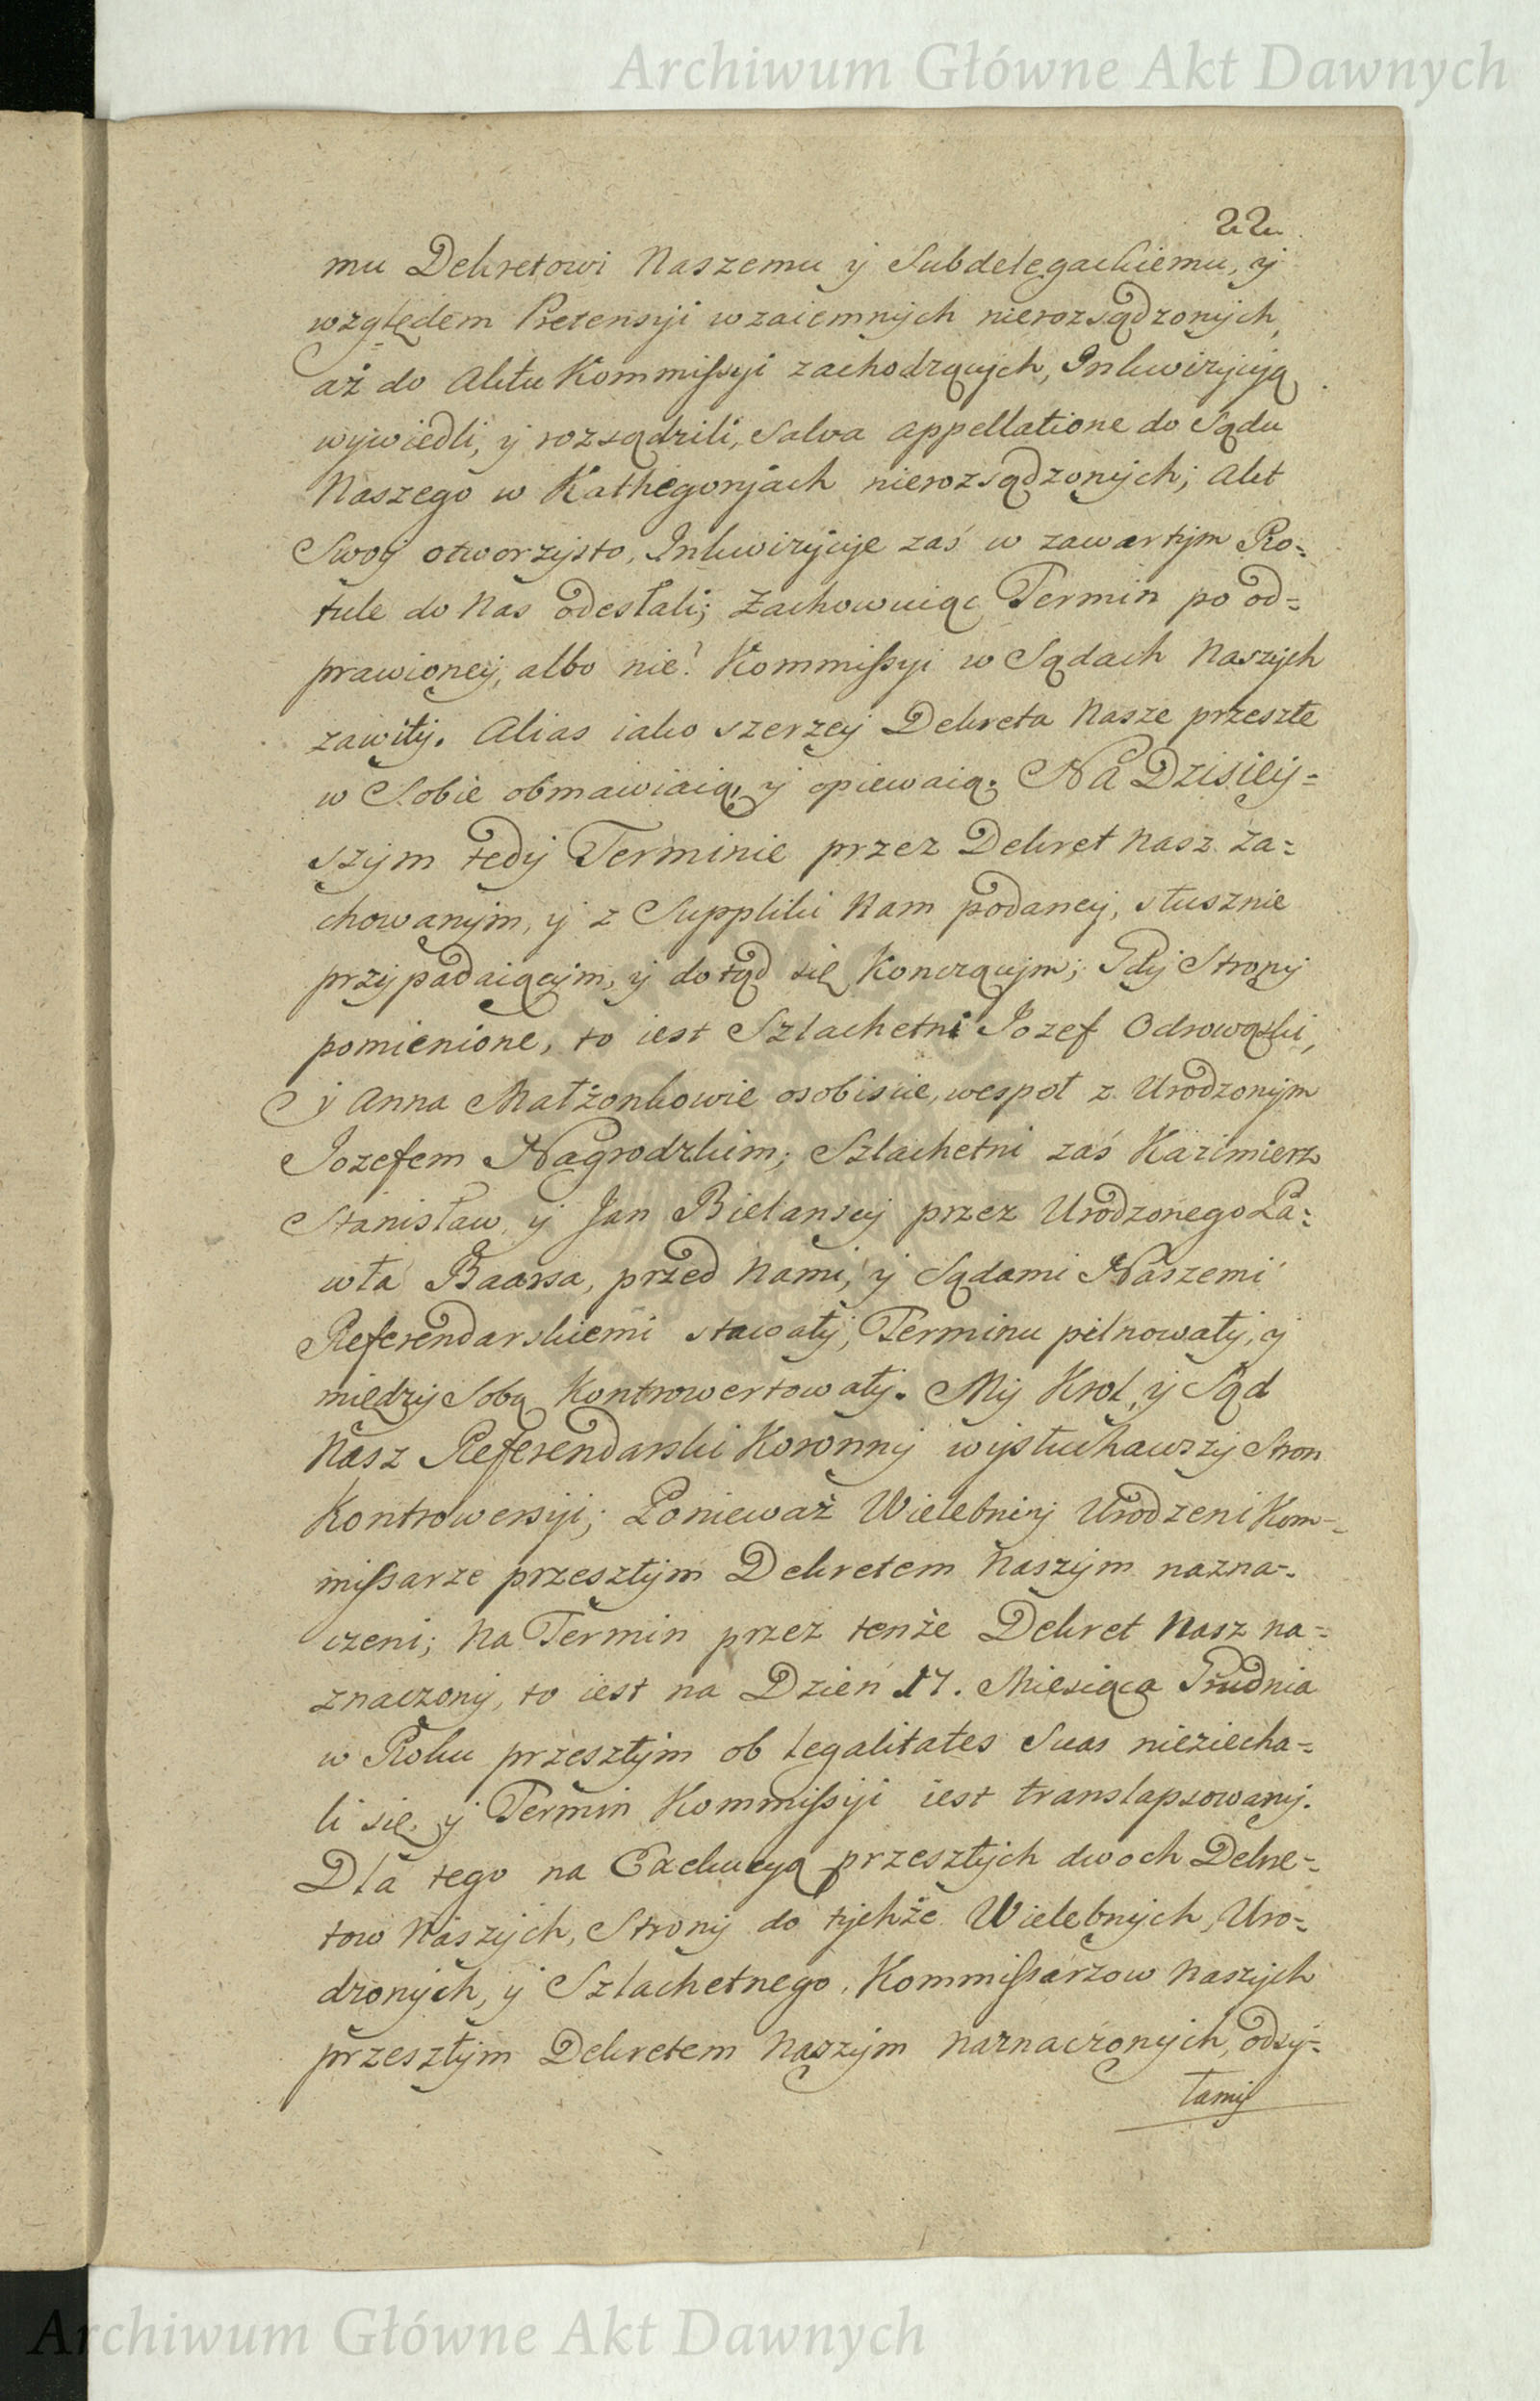 Archiwum Główne Akt Dawnych
22.
mu Dekretowi Naszemu y Subdelegackiemu, y
względem Pretensyi wzaiemnych nierozsądzonych,
aż do Aktu Kommissyi zachodzących, Inkwizycyą
wywiedli, y rozsądzili, Salva appellatione do Sądu
Naszego w Kathegoryach nierozsądzonych; Akt
Swoy otworzysto, Inkwizycye zaś w zawartym Ro=
tule do Nas odesłali; Zachowuiąc Termin po od=
prawioney, albo nie? Kommissyi w Sądach Naszych
zawity. Alias iako szerzey Dekreta Nasze przeszłe
w Sobie obmawiaią, y opiewaią. Na Dzisiey=
szym tedy Terminie przez Dekret Nasz za=
chowanym, y z Suppliki Nam podaney, słusznie
przypadaiącym, y dotąd się Konczącym; Gdy Strony
pomienione, to iest Szlachetni Jozef Odrowąski,
y Anna Małżonkowie osobiscie, wespoł z Urodzonym
Jozefem Nagrodzkim; Szlachetni zaś Kazimierz
Stanisław y Jan Bielanscy przez Urodzonego Pa=
wła Baarsa, przed Nami, y Sądami Naszemi
Referendarskiemi stawały, Terminu pilnowały, y
między Sobą Kontrowertowały. My Krol, y Sąd
Nasz Referendarski Koronny wysłuchawszy Stron
Kontrowersyi; Ponieważ Wielebni y Urodzeni Kom=
missarze przeszłym Dekretem Naszym nazna=
czeni; Na Termin przez tenże Dekret Nasz na=
znaczony, to iest na Dzień 17. Miesiąca Grudnia
w Roku przeszłym ob legalitates Suas nieziecha=
li się, y Termin Kommissyi iest translapsowany.
Dla tego na Exekucyą przeszłych dwoch Dekre=
tow Naszych, Strony do tychże Wielebnych, Uro=
dzonych, y Szlachetnego, Kommissarzow Naszych
przeszłym Dekretem Naszym naznaczonych, odsy=
łamy
Archiwum Główne Akt Dawnych